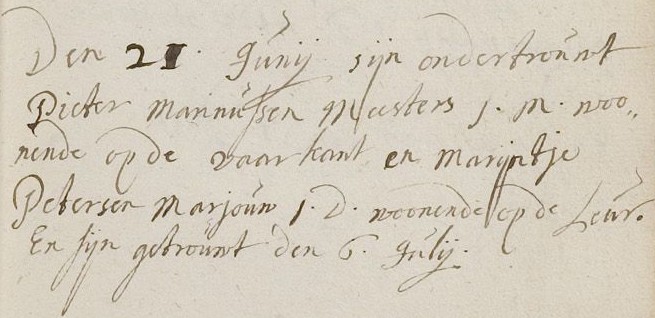 Den 21. Junij sijn ondertrouwt
Pieter Marinussen Meesters j. m. woo„
nende op de vaarkant en Marijntje
Petersen Marjouw j. D. woonende op de Leur.
En sijn getrouwt den 6. Julij.